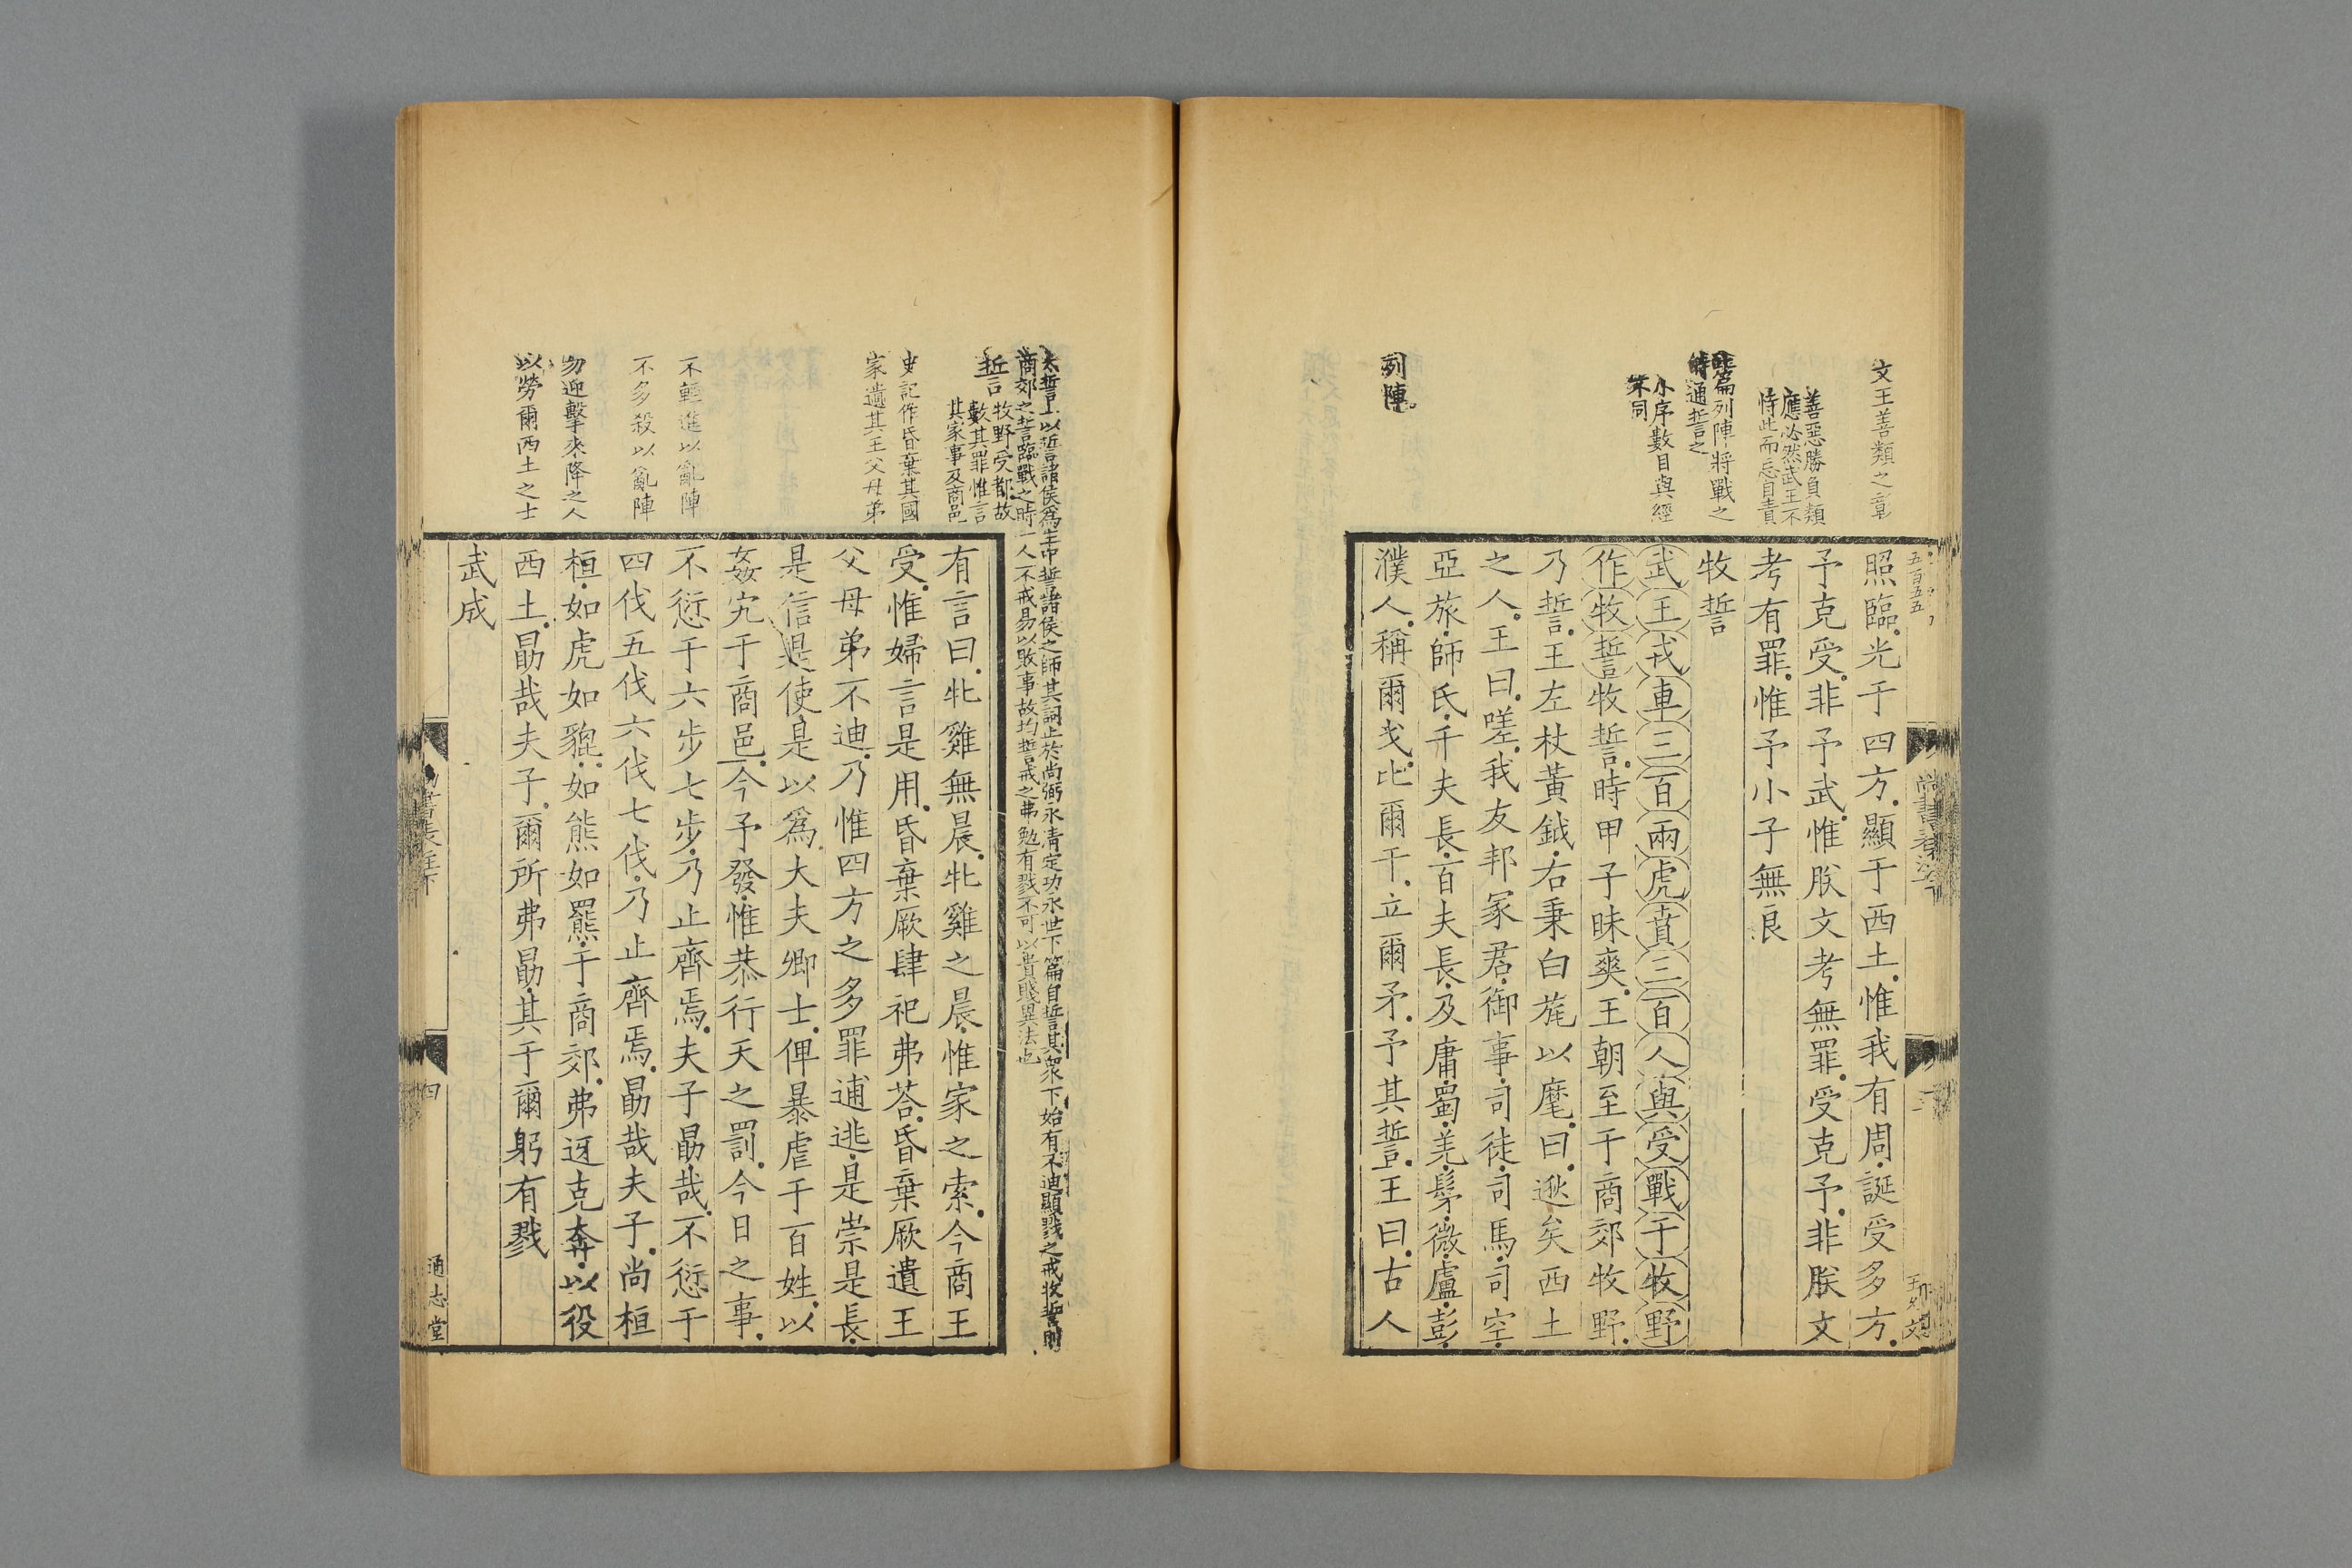 文王善類之彰
善惡勝負類
應必然武王不
恃此而忘自責
篇列陣將戰之
時通誓之
小序數目與經
不同
列陣
五百五五
照臨光于四方顯于西土惟我有周誕受多方
予克受非予武惟朕文考無罪受克予非朕文
考有罪惟予小子無良
牧誓
武王戎車三百兩虎賁三百人與受戰于牧野
作牧誓牧誓時甲子昧爽王朝至于商郊牧野
乃誓王左杖黃鉞右秉白旄以麾曰逖矣西土
之人王曰嗟我友邦冢君御事司徒司馬司空
亞旅師氏千夫長百夫長及庸蜀羌髳微盧彭
濮人稱爾戈比爾干立爾矛予其誓王曰古人
太誓上以誓諸侯爲主中誓諸侯之師其詞止於尚弼永清定功永世下篇自誓其衆下始有不迪顯戮之戒牧誓則
商郊之誓臨戰之時一人不戒易以敗事故均誓戒之弗勉有戮不可以貴賤異法也
誓
牧野受都故
數其罪惟言
其家事及商邑
史記作昏棄其國
家遺其王父母弟
不輕進以亂陣
不多殺以亂陣
勿迎擊來降之人
以勞爾西土之士
有言曰牝雞無晨牝雞之晨惟家之索今商王
受惟婦言是用昏棄厥肆祀弗荅昏棄厥遺王
父母弟不迪乃惟四方之多罪逋逃是崇是長
是信是使是以爲大夫卿士俾暴虐于百姓以
姦宄于商邑今予發惟恭行天之罰今日之事
不愆于六步七步乃止齊焉夫子勗哉不愆于
四伐五伐六伐七伐乃止齊焉勗哉夫子尚桓
桓如虎如貔如熊如羆于商郊弗迓克奔以役
西土勗哉夫子爾所弗勗其于爾躬有戮
武成
四
通志堂